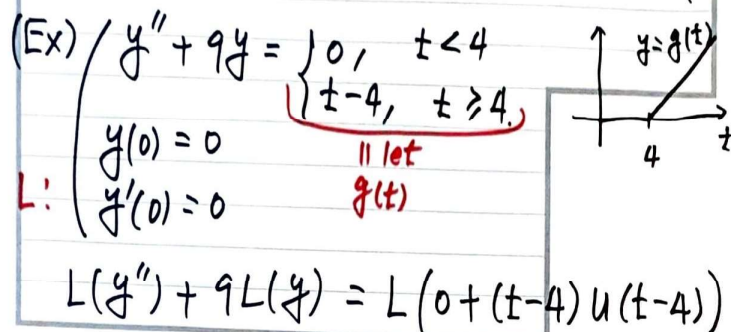 (Ex) y'' + 9y = { 0, t < 4
t-4, t ≥ 4.
y = g(t)
t
4
y(0) = 0
|| let
g(t)
L: y'(0) = 0
L(y'') + 9L(y) = L(0 + (t-4) u(t-4))